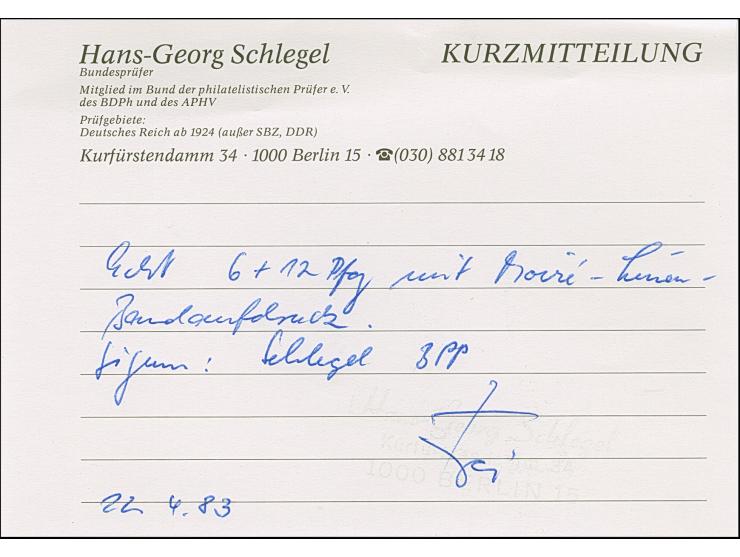 Hans-Georg Schlegel
KURZMITTEILUNG
Bundesprüfer
Mitglied im Bund der philatelistischen Prüfer e. V.
des BDPh und des APHV
Prüfgebiete:
Deutsches Reich ab 1924 (außer SBZ, DDR)
Kurfürstendamm 34 · 1000 Berlin 15 · ☎(030) 881 34 18
Echt 6 + 12 Pfg mit Moiré - Linien -
Bandaufdruck.
Signum: Schlegel BPP
22 4. 83
Hans-Georg Schlegel
1000 BERLIN 15